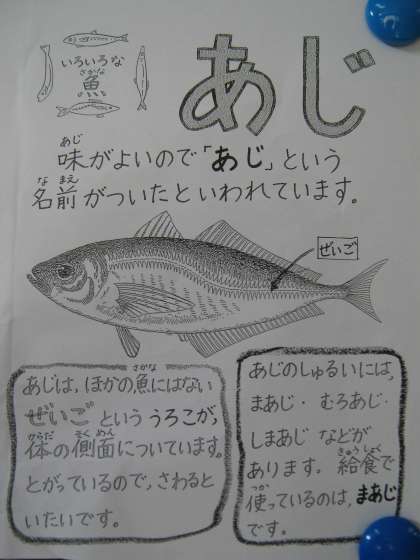 いろいろな
魚
さかな
あじ
味がよいので「あじ」という
あじ
名前がついたといわれています。
な まえ
ぜいご
あじは、ほかの魚にはない
さかな
ぜいごといううろこが、
体の側面についています。
からだ そくめん
とがっているので、さわると
いたいです。
あじのしゅるいには、
まあじ・むろあじ・
しまあじなどが
あります。給食で
きゅうしょく
使っているのは、まあじ
つか
です。